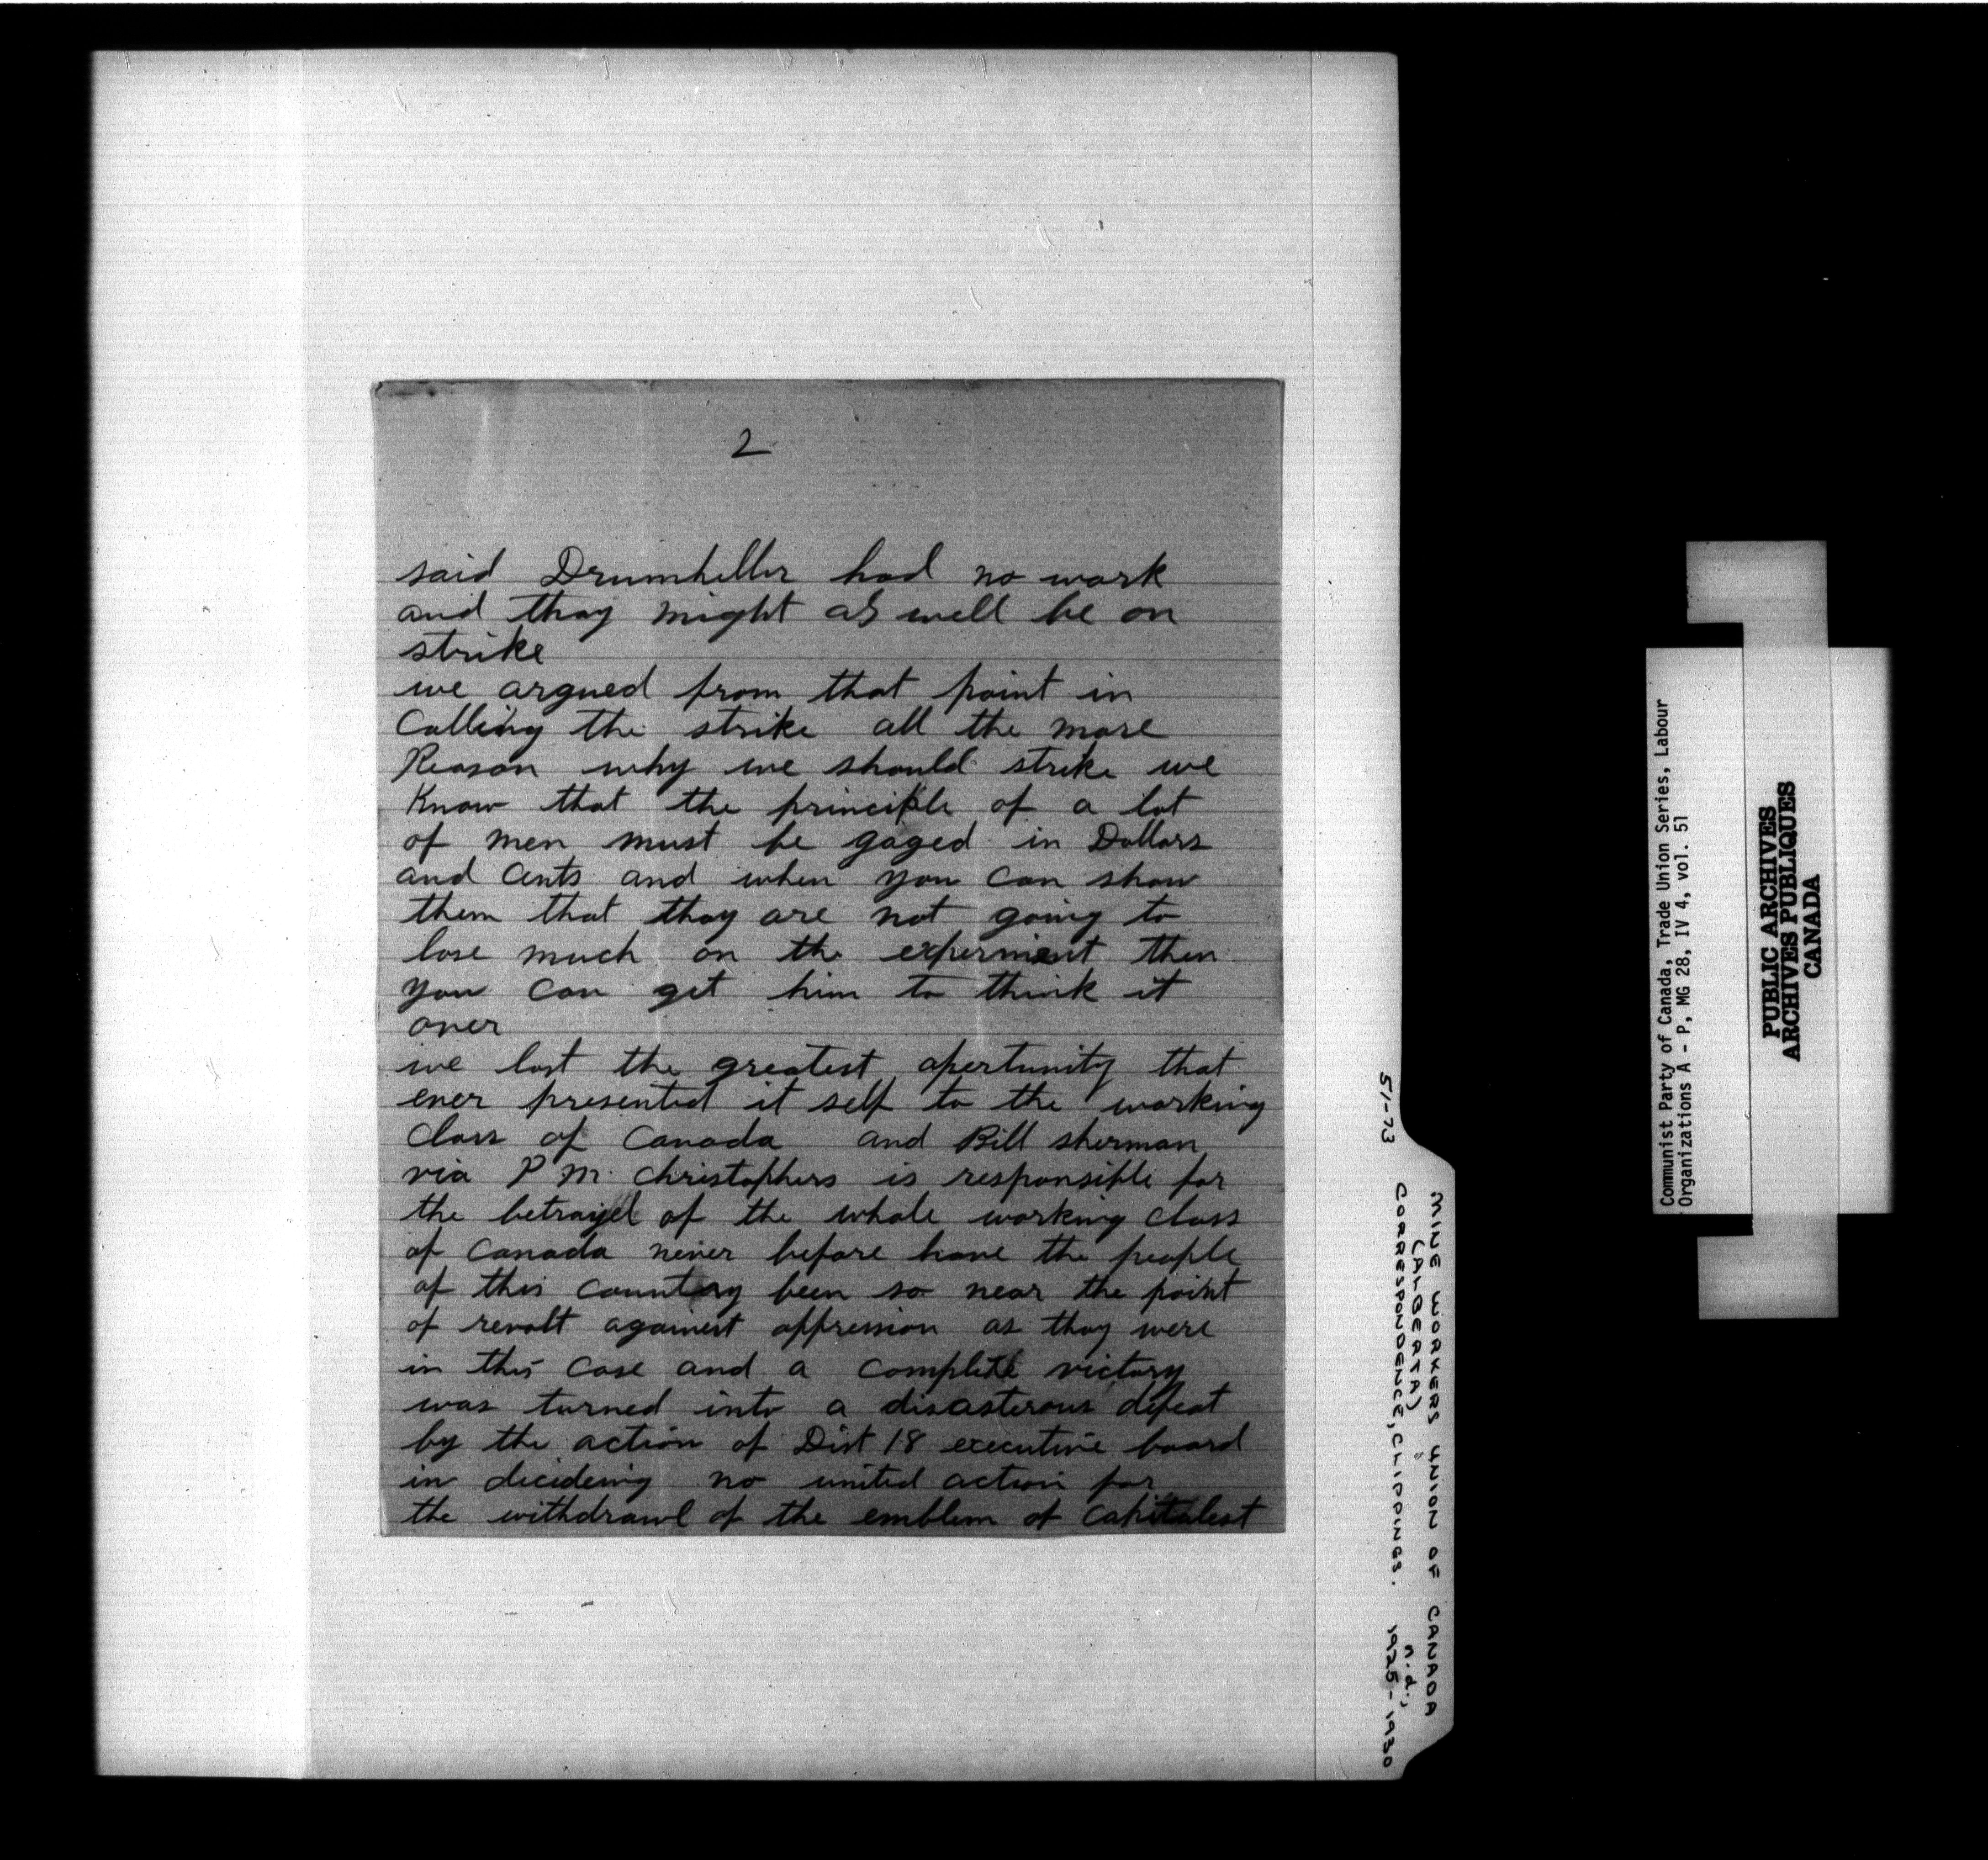 2
said Drumheller had no work
and thay might as well be on
strike
we argued from that point in
Calling the strike all the more
Reason why we should strike we
Know that the principle of a lot
of men must be gaged in Dollars
and Cents and when you can show
them that thay are not going to
lose much on the experment then
you can get him to think it
over
we lost the greatest opertunity that
ever presented it self to the working
class of Canada and Bill sherman
via P M. Christophers is responsible for
the betrayel of the whole working class
of Canada never before have the people
of this country been so near the point
of revolt against oppression as thay were
in this case and a complete victory
was turned into a disasterous defeat
by the action of Dist 18 executive board
in decideing no united action for
the withdrawl of the emblem of Capitalest
51-73
MINE WORKERS UNION OF CANADA
(ALBERTA)
n.d.,
CORRESPONDENCE, CLIPPINGS. 1925-1930
Communist Party of Canada, Trade Union Series, Labour
Organizations A - P, MG 28, IV 4, vol. 51
PUBLIC ARCHIVES
ARCHIVES PUBLIQUES
CANADA